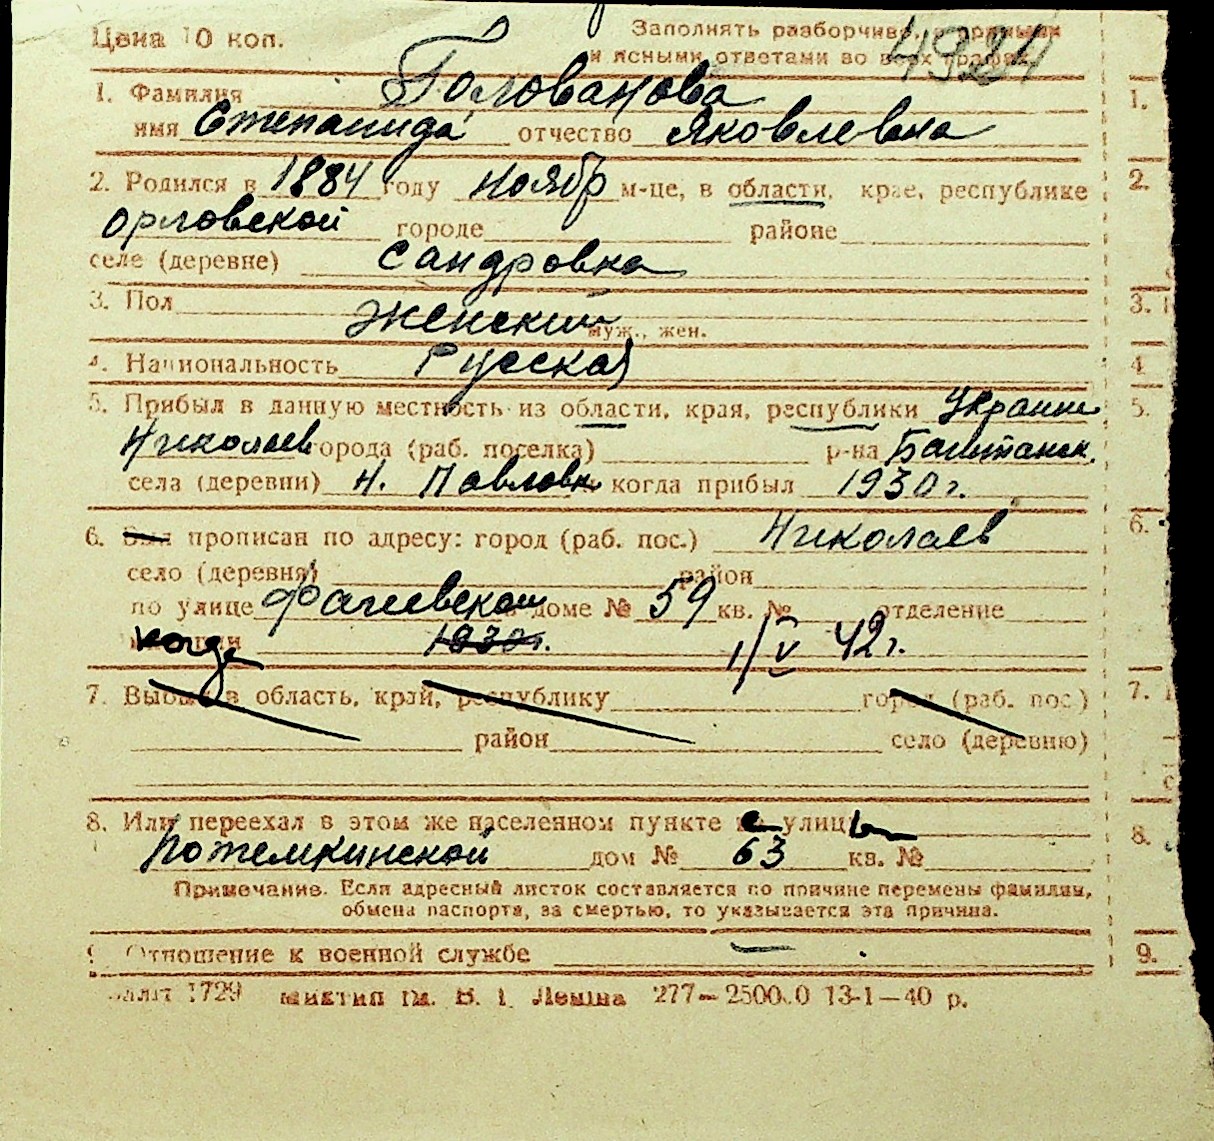 Цена 10 коп. Заполнять разборчиво,
и ясными ответами во всех графах 4924
1. Фамилия Голованова 1.
имя Степанида отчество Яковлевна
2. Родился в 1884 году ноябр м-це, в области, крае, республике 2.
Орловской городе районе
селе (деревне) Сандровка
3. Пол женский 3.
муж., жен.
4. Национальность Русская 4
5. Прибыл в данную местность из области, края, республики Украины 5.
Николаев города (раб. поселка) р-на Баштанск.
села (деревни) Н. Павловк когда прибыл 1930 г.
6. Был прописан по адресу: город (раб. пос.) Николаев 6.
село (деревня) район
по улице Фалеевской в доме № 59 кв. № отделение
когда 1930г. 1/V 42 г.
7. Выбыл в область, край, республику город (раб. пос.) 7.
район село (деревню)
8. Или переехал в этом же населенном пункте с улицы 8.
Потемкинской дом № 63 кв. №
Примечание. Если адресный листок составляется по причине перемены фамилии,
обмена паспорта, за смертью, то указывается эта причина.
9. Отношение к военной службе — 9.
1729 им. В. І. Леніна 277—250000 13-1—40 р.